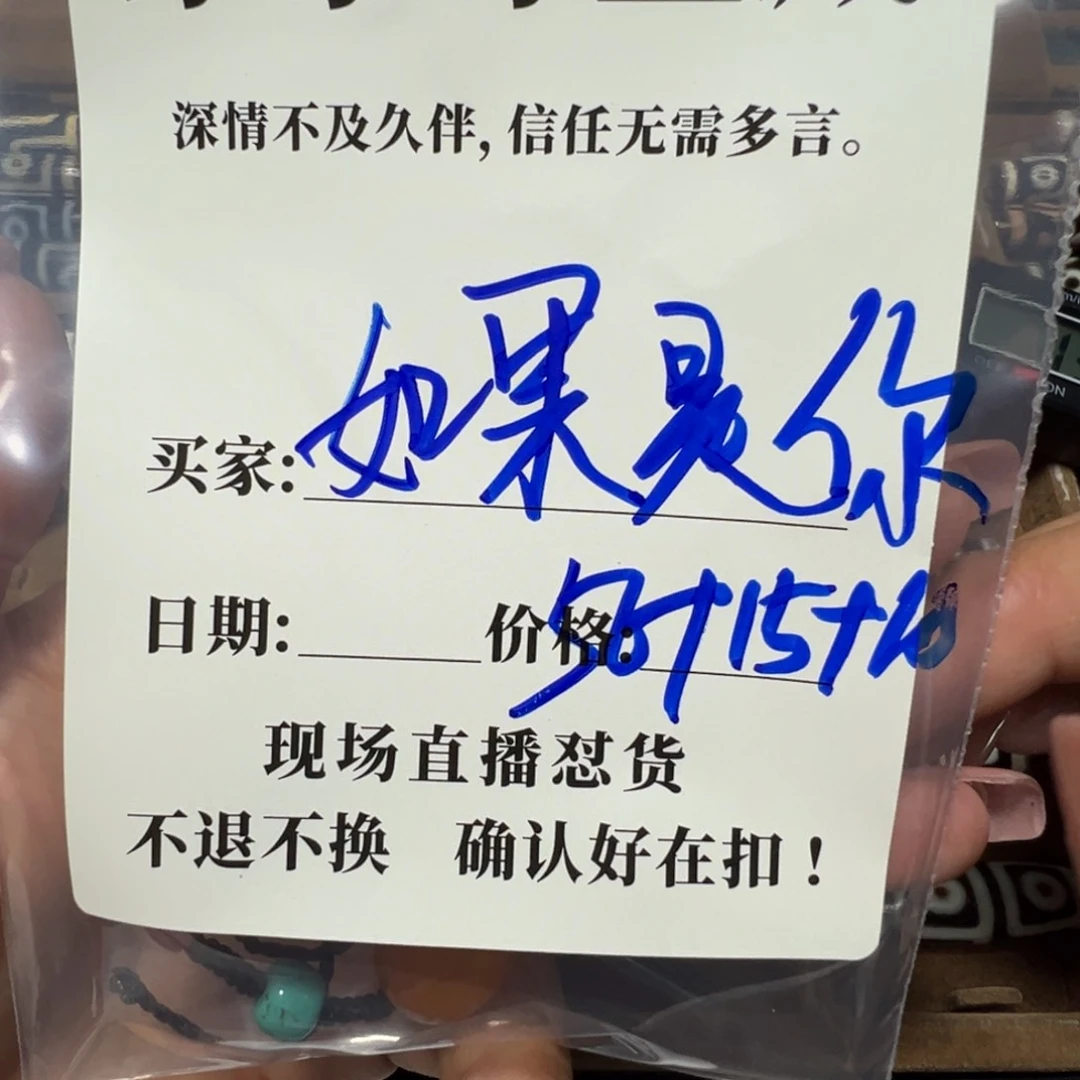 深情不及久伴,信任无需多言。
买家:如果是你
日期:______价格:56+15+20
现场直播怼货
不退不换 确认好在扣!